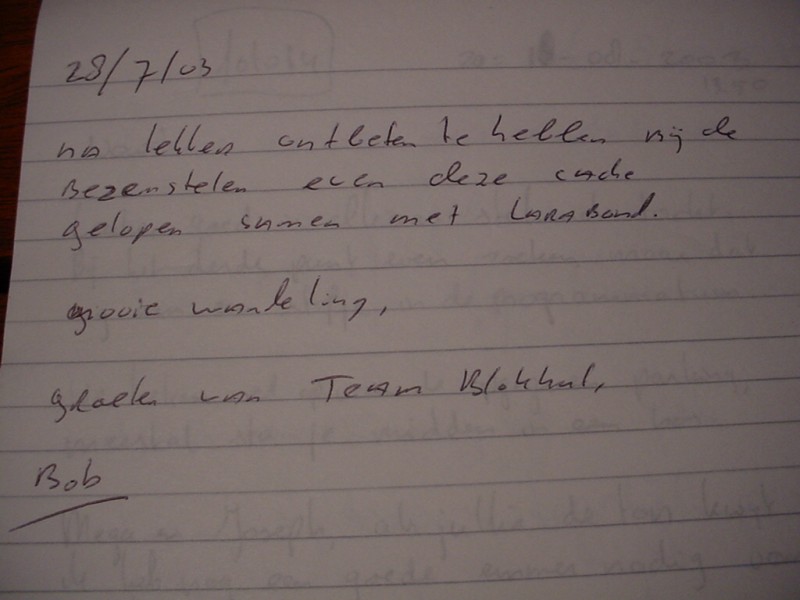 28/7/03
na lekker ontbeten te hebben bij de
Bezemstelen even deze cache
gelopen samen met LARA Bond.
mooie wandeling,
groeten van Team Blokhut,
Bob